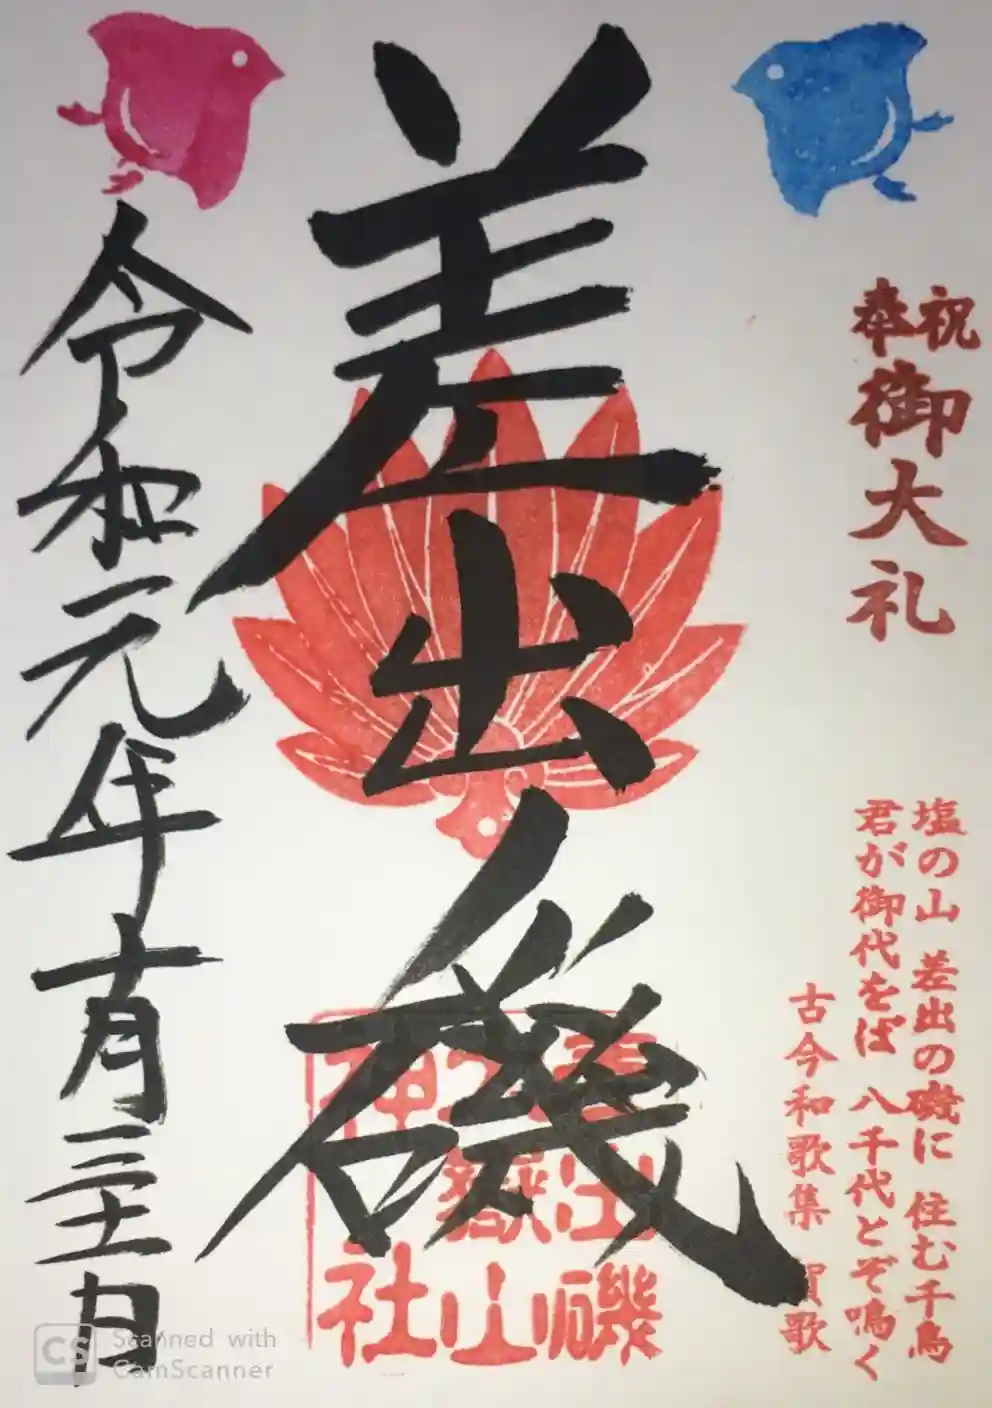 奉祝
御大礼
塩の山 差出の磯に 住む千鳥
君が御代をば 八千代とぞ鳴く
古今和歌集 賀歌
差出ノ磯
差出磯
大嶽山
神社
令和元年十月三十一日
CS Scanned with
CamScanner